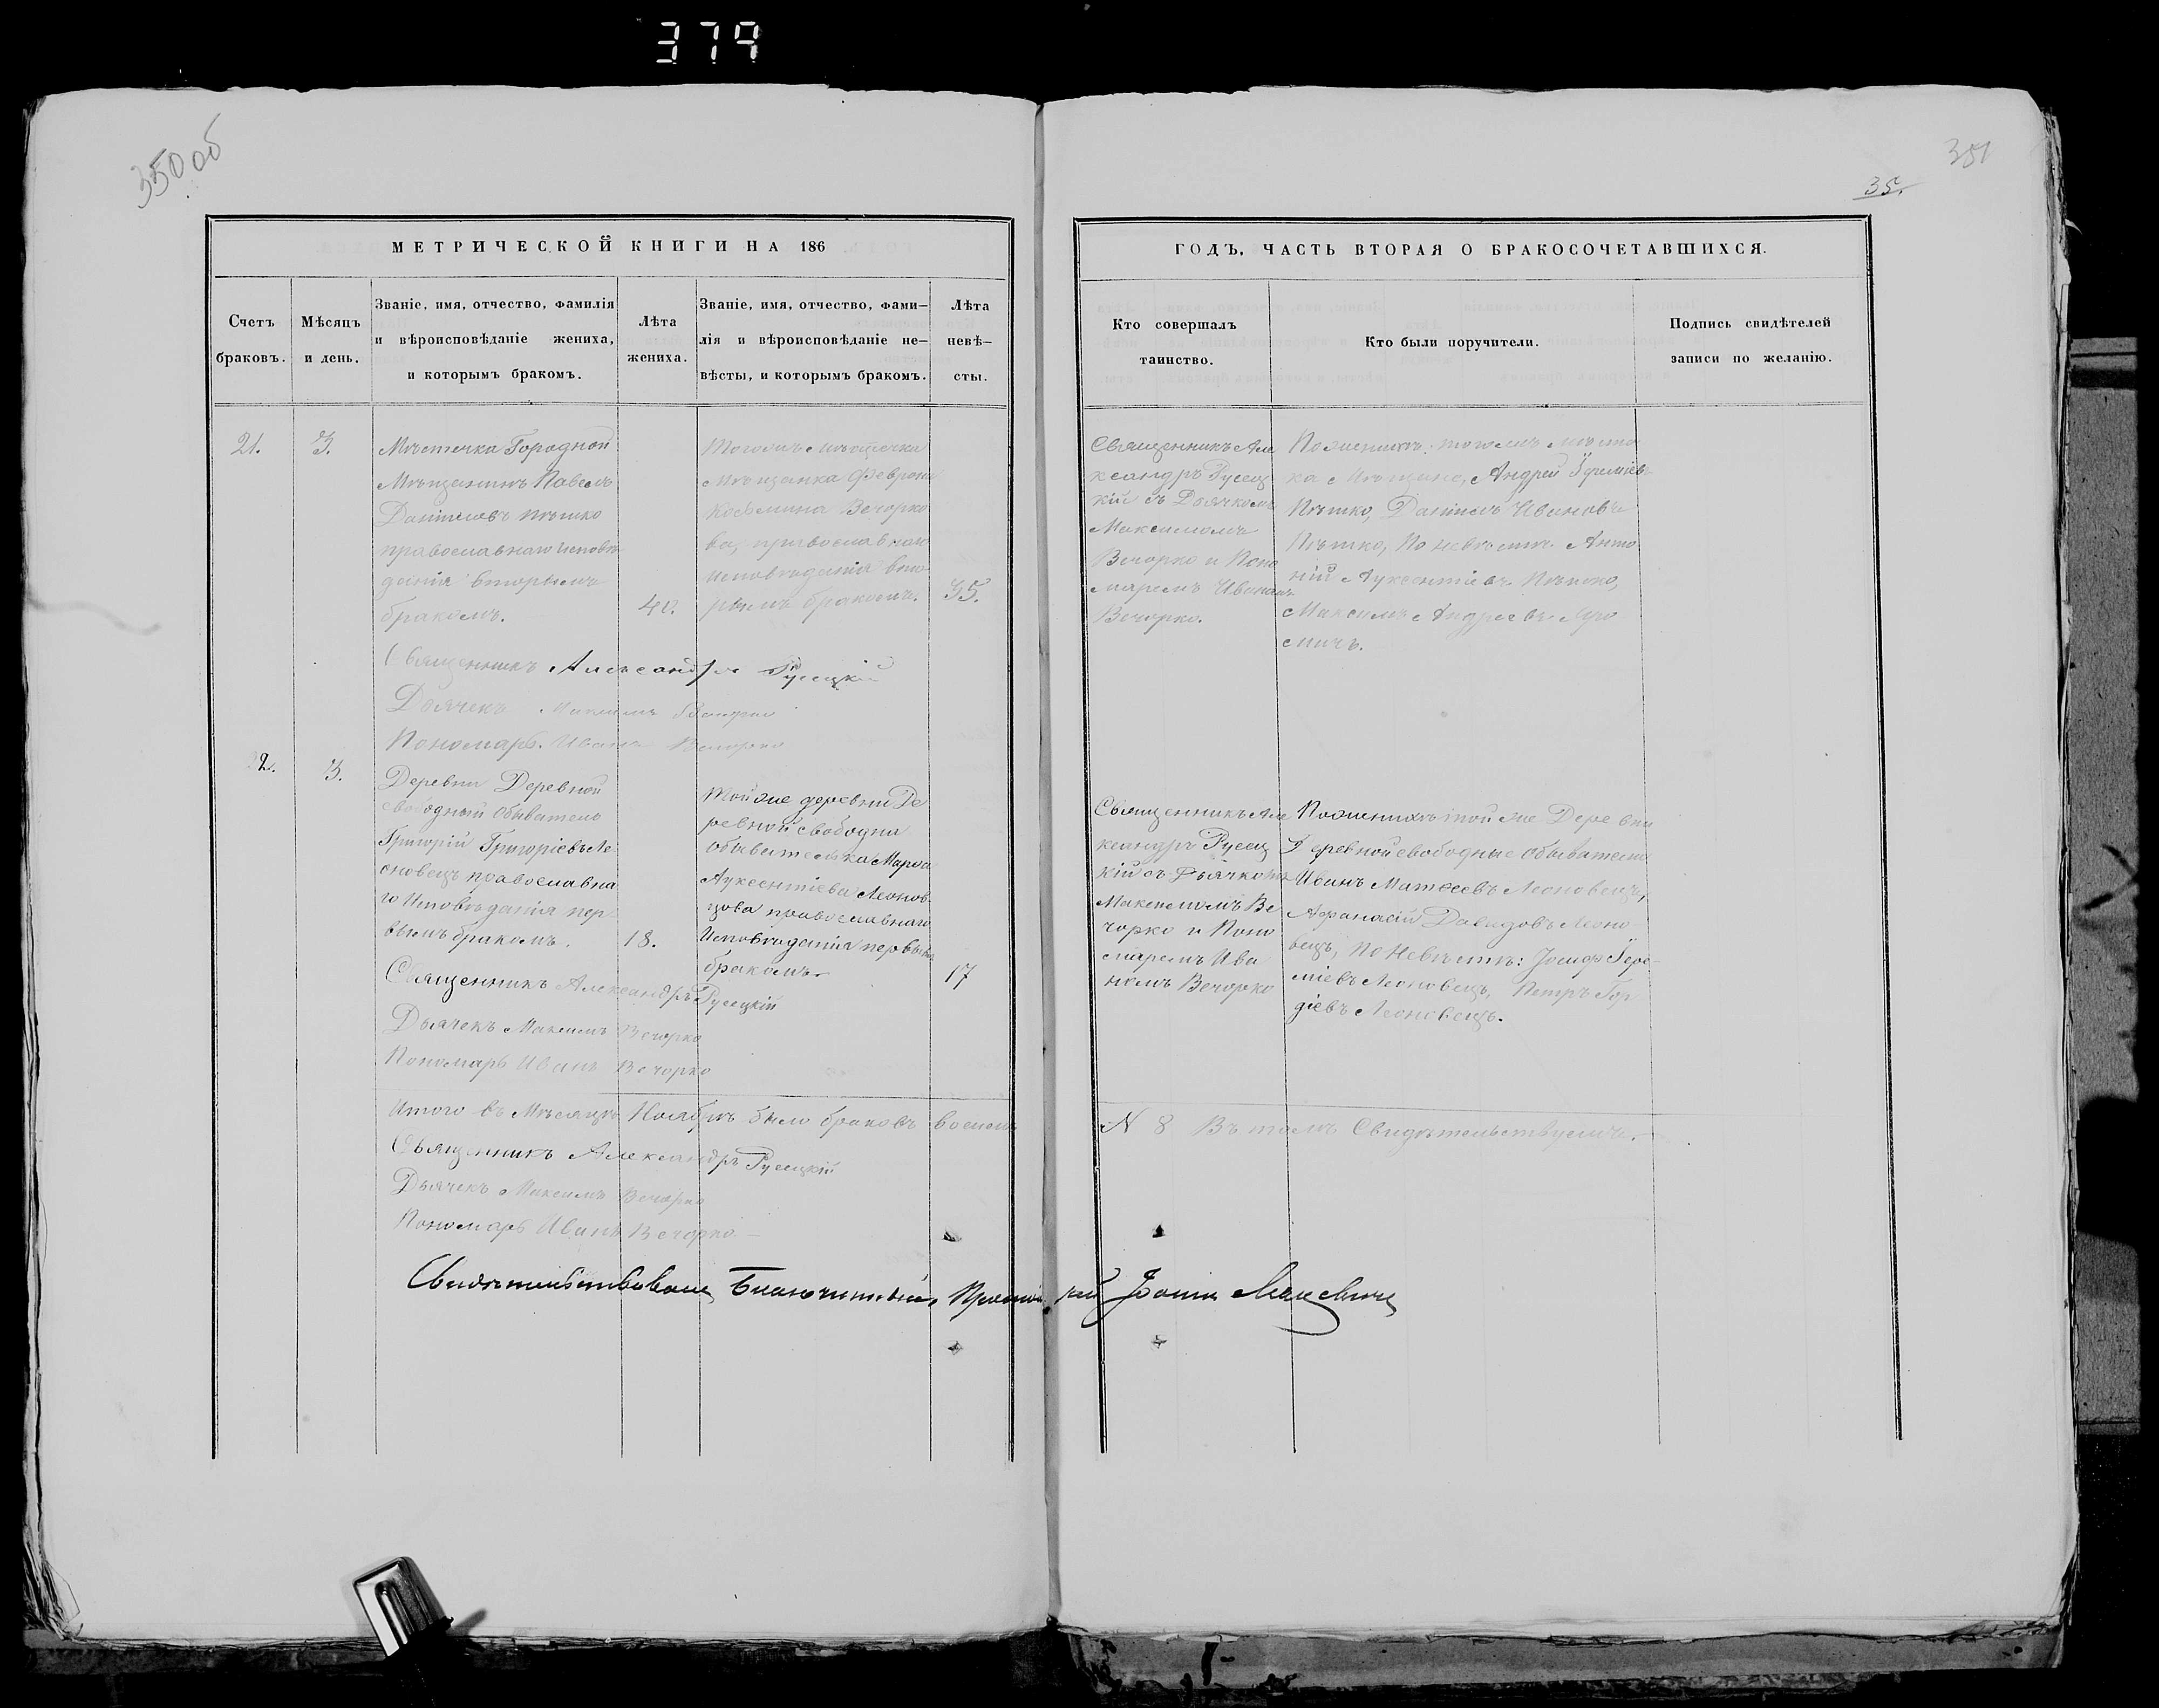 379
350 об
351
35.
МЕТРИЧЕСКОЙ КНИГИ НА 186
ГОДЪ, ЧАСТЬ ВТОРАЯ О БРАКОСОЧЕТАВШИХСЯ.
Счетъ
браковъ.
Мѣсяцъ
и день.
Званіе, имя, отчество, фамилія
и вѣроисповѣданіе жениха,
и которымъ бракомъ.
Лѣта
жениха.
Званіе, имя, отчество, фами–
лія и вѣроисповѣданіе не–
вѣсты, и которымъ бракомъ.
Лѣта
невѣ–
сты.
Кто совершалъ
таинство.
Кто были поручители.
Подпись свидѣтелей
записи по желанію.
21.
3.
Мѣстечка Городной
Мѣщанинъ Павелъ
Даніиловъ Пѣшко
православнаго исповѣ
данія вторымъ
бракомъ.
40.
Тогожъ мѣстечка
Мѣщанка Феврон
Косьмина Вечорко
ва, православнаго
исповѣданія вто
рымъ бракомъ.
35.
Священникъ Але
ксандръ Русец
кій съ Дьячкомъ
Максимомъ
Вечорко и Поно
маремъ Иваномъ
Вечорко.
По женихѣ: тогожъ мѣстеч
ка Мѣщане, Андрей Іереміевъ
Пѣшко, Даніилъ Ивановъ
Пѣшко, По невѣстѣ: Анто
ній Ауксентіевъ Пѣшко,
Максимъ Андреевъ
Священникъ Александръ Русецкій
Дьячекъ Максимъ Вечорко
Пономарь Иванъ Вечорко
22.
3.
Деревни Деревной
свободный обыватель
Григорій Григоріевъ Ле
оновецъ православна
го Исповѣданія пер
вымъ бракомъ.
18.
Той же деревни Де
ревной свободна
обывателька Марѳа
Ауксентіева Леонов
цова православнаго
Исповѣданія первымъ
бракомъ
17
Священникъ Але
ксандръ Русец
кій съ Дьячкомъ
Максимомъ Ве
чорко и Поно
маремъ Ива
номъ Вечорко
По женихѣ той же Деревни
Деревной свободные обыватели
Иванъ Матѳеевъ Леоновецъ,
Афанасій Давидовъ Леоно
вецъ, По Невѣстѣ: Іосифъ Іере–
міевъ Леоновецъ, Петръ Гор
діевъ Леоновецъ.
Священникъ Александръ Русецкій
Дьячекъ Максимъ Вечорко
Пономарь Иванъ Вечорко
Итого въ Мѣсяцѣ Ноябрѣ было браковъ восемь
N 8 Въ томъ Свидѣтельствуемъ.
Священникъ Александръ Русецкій
Дьячекъ Максимъ Вечорко
Пономарь Иванъ Вечорко
Свидѣтельствовалъ Благочинный, Іоаннъ